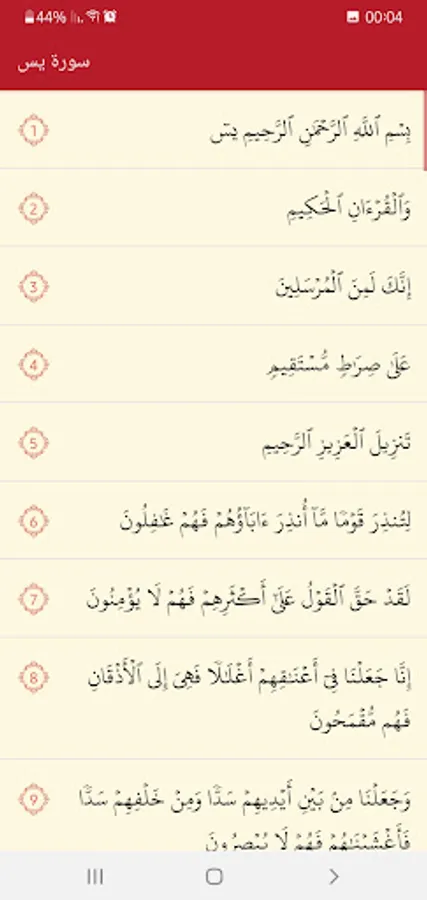 44% 00:04
سورة يس
1 بِسْمِ ٱللَّهِ ٱلرَّحْمَٰنِ ٱلرَّحِيمِ يسٓ
2 وَٱلْقُرْءَانِ ٱلْحَكِيمِ
3 إِنَّكَ لَمِنَ ٱلْمُرْسَلِينَ
4 عَلَىٰ صِرَٰطٍ مُّسْتَقِيمٍ
5 تَنزِيلَ ٱلْعَزِيزِ ٱلرَّحِيمِ
6 لِتُنذِرَ قَوْمًا مَّآ أُنذِرَ ءَابَآؤُهُمْ فَهُمْ غَٰفِلُونَ
7 لَقَدْ حَقَّ ٱلْقَوْلُ عَلَىٰٓ أَكْثَرِهِمْ فَهُمْ لَا يُؤْمِنُونَ
8 إِنَّا جَعَلْنَا فِىٓ أَعْنَٰقِهِمْ أَغْلَٰلًا فَهِىَ إِلَى ٱلْأَذْقَانِ
فَهُم مُّقْمَحُونَ
9 وَجَعَلْنَا مِنۢ بَيْنِ أَيْدِيهِمْ سَدًّا وَمِنْ خَلْفِهِمْ سَدًّا
فَأَغْشَيْنَٰهُمْ فَهُمْ لَا يُبْصِرُونَ